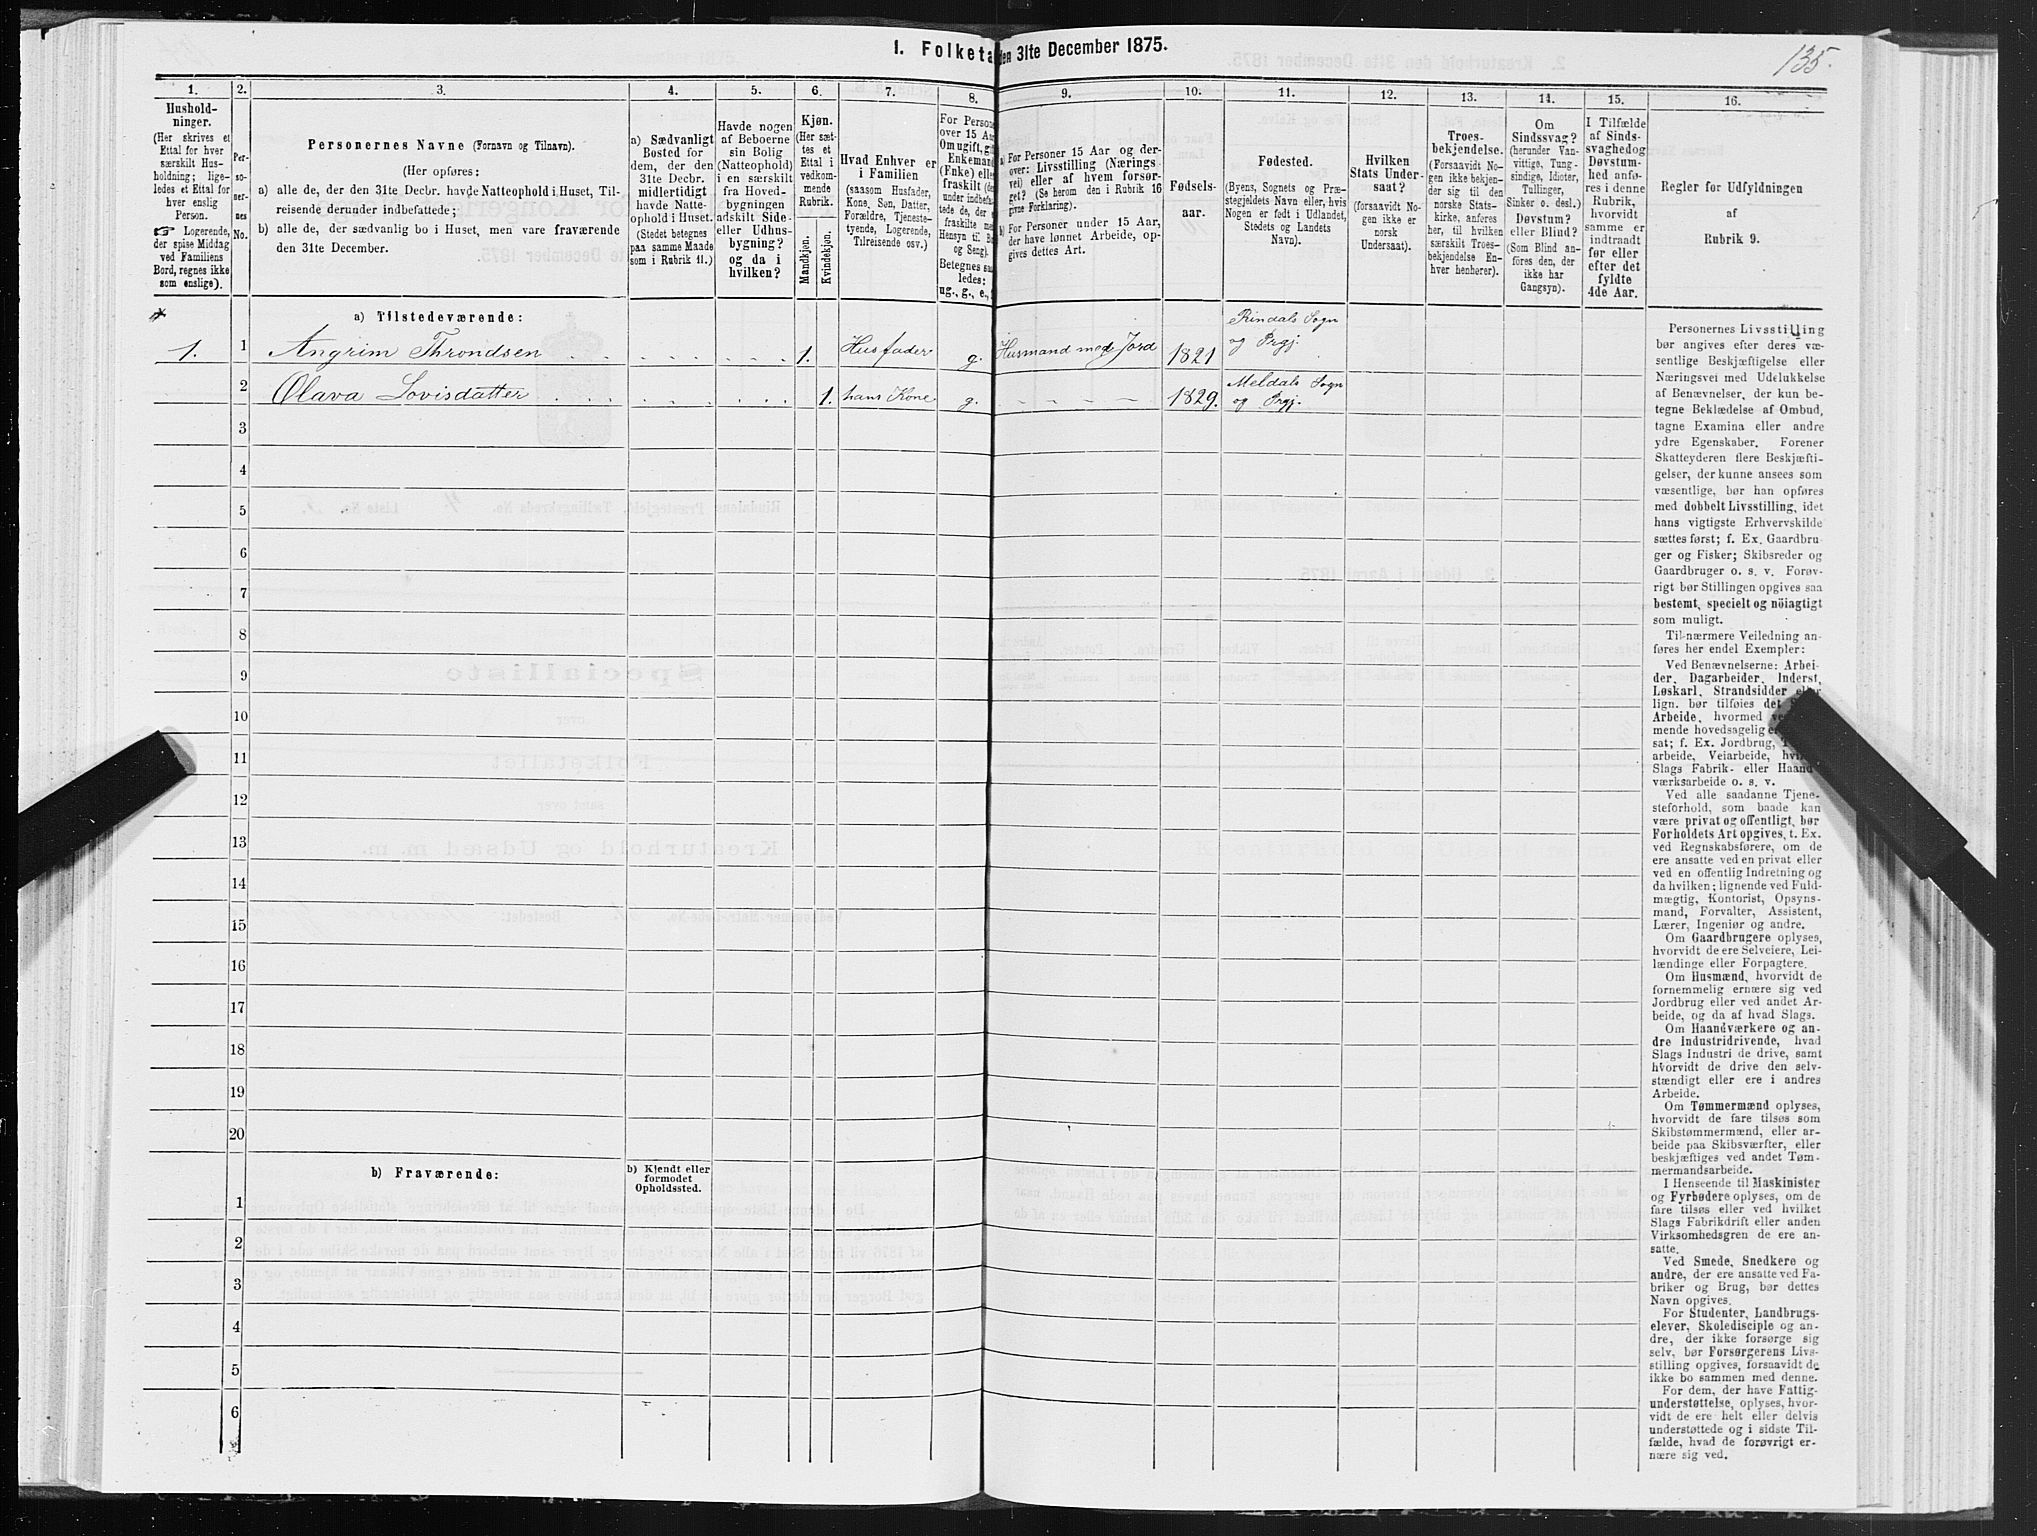 1. Folketa den 31te December 1875.
135.
1.
2.
3.
4.
5.
6.
7.
8.
9.
10.
11.
12.
13.
14.
15.
16.
Hushold-
ninger.
(Her skrives et
Ettal for hver
særskilt Hus-
holdning; lige-
ledes et Ettal for
hver enslig
Person.
☞ Logerende,
der spise Middag
ved Familiens
Bord, regnes ikke
som enslige).
Per-
so-
ner-
nes
No.
Personernes Navne (Fornavn og Tilnavn).
(Her opføres:
a) alle de, der den 31te Decbr. havde Natteophold i Huset, Til-
reisende derunder indbefattede;
b) alle de, der sædvanlig bo i Huset, men vare fraværende
den 31te December.
a) Sædvanligt
Bosted for
dem, der den
31te Decbr.
midlertidigt
havde Natte-
ophold i Huset.
(Stedet betegnes
paa samme Maade
som i Rubrik 11.)
Havde nogen
af Beboerne
sin Bolig
(Natteophold)
i en særskilt
fra Hoved-
bygningen
adskilt Side-
eller Udhus-
bygning?
og da i
hvilken?
Kjøn.
(Her sæt-
tes et
Ettal i
vedkom-
mende
Rubrik.
Mandkjøn.
Kvindekjøn.
Hvad Enhver er
i Familien
(saasom Husfader,
Kone, Søn, Datter,
Forældre, Tjeneste-
tyende, Logerende,
Tilreisende osv.)
For Persone
over 15 Aa
Om ugift, g
Enkemand
(Enke) elle
fraskilt (de
under indbefa
tede de, der
fraskilte me
Hensyn til B
og Seng).
Betegnes saa
ledes:
ug., g., e.,
a) For Personer 15 Aar og der-
over: Livsstilling (Nærings
vei) eller af hvem forsør-
get? (Se herom den i Rubrik 16
givne Forklaring).
b) For Personer under 15 Aar,
der have lønnet Arbeide, op-
gives dettes Art.
Fødsels-
aar.
Fødested.
(Byens, Sognets og Præ-
stegjeldets Navn eller, hvis
Nogen er født i Udlandet,
Stedets og Landets
Navn).
Hvilken
Stats Under-
saat?
(forsaavidt No-
gen ikke er
norsk
Undersaat).
Troes-
bekjendelse.
(Forsaavidt No-
gen ikke bekjen-
der sig til den
norske Stats-
kirke, anføres
her, til hvilken
særskilt Troes-
bekjendelse En-
hver henhører).
Om
Sindssvag?
(herunder Van-
vittige, Tung-
sindige, Idioter,
Tullinger,
Sinker o. desl.)
Døvstum?
eller Blind?
(Som Blind an-
føres den, der
ikke har
Gangsyn).
I Tilfælde
af Sinds-
svaghedog
Døvstum-
hed anfø-
res i denne
Rubrik,
hvorvidt
samme er
indtraadt
før eller
efter det
fyldte
4de Aar.
Regler for Udfyldningen
af
Rubrik 9.
a) Tilstedeværende:
1. 1 Angrim Throndsen 1. Husfader g. Husmand med Jord 1821 Rindals Sogn
og Prgj.
2 Olava Lovisdatter 1. hans Kone g. 1829. Meldals Sogn
og Prgj.
3
4
5
6
7
8
9
10
11
12
13
14
15
16
17
18
19
20
b) Fraværende:
b) Kjendt eller
formodet
Opholdssted.
1
2
3
4
5
6
Personernes Livsstilling
bør angives efter deres væ-
sentlige Beskjæftigelse eller
Næringsvei med Udelukkelse
af Benævnelser, der kun be-
tegne Beklædelse af Ombud,
tagne Examina eller andre
ydre Egenskaber. Forener
Skatteyderen flere Beskjæfti-
gelser, der kunne ansees som
væsentlige, bør han opføres
med dobbelt Livsstilling, idet
hans vigtigste Erhvervskilde
sættes først; f. Ex. Gaardbru
ger og Fisker; Skibsreder og
Gaardbruger o. s. v. Forøv-
rigt bør Stillingen opgives saa
bestemt, specielt og nöiagtigt
som muligt.
Til nærmere Veiledning an-
føres her endel Exempler:
Ved Benævnelserne: Arbei-
der, Dagarbeider, Inderst,
Løskarl, Strandsidder eller
lign. bør tilføies det
Arbeide, hvormed ve
mende hovedsagelig e
sat; f. Ex. Jordbrug,
arbeide, Veiarbeide, hvi
Slags Fabrik- eller Haand
værksarbeide o. s. v.
Ved alle saadanne Tjene-
steforhold, som baade kan
være privat og offentligt, bør
Forholdets Art opgives, t. Ex.
ved Regnskabsførere, om de
ere ansatte ved en privat eller
ved en offentlig Indretning og
da hvilken; lignende ved Fuld-
mægtig, Kontorist, Opsyns-
mand, Forvalter, Assistent,
Lærer, Ingeniør og andre.
Om Gaardbrugere oplyses,
hvorvidt de ere Selveiere, Lei-
lændinge eller Forpagtere.
Om Husmænd, hvorvidt de
fornemmelig ernære sig ved
Jordbrug eller ved andet Ar-
beide, og da af hvad Slags.
Om Haandværkere og an-
dre Industridrivende, hvad
Slags Industri de drive, samt
hvorvidt de drive den selv-
stændigt eller ere i andres
Arbeide.
Om Tømmermænd oplyses,
hvorvidt de fare tilsøs som
Skibstømmermænd, eller ar-
beide paa Skibsværfter, eller
beskjæftiges ved andet Tøm-
mermandsarbeide.
I Henseende til Maskinister
og Fyrbødere oplyses, om de
fare tilsøs eller ved hvilket
Slags Fabrikdrift eller anden
Virksomhedsgren de ere an-
satte.
Ved Smede, Snedkere og
andre, der ere ansatte ved Fa-
briker og Brug, bør dettes
Navn opgives.
For Studenter, Landbrugs-
elever, Skoledisciple og an-
dre, der ikke forsørge sig
selv, bør Forsørgerens Livs-
stilling opgives, forsaavidt de
ikke bo sammen med denne.
For dem, der have Fattig-
understøttelse, oplyses, hvor-
vidt de ere helt eller delvis
understøttede og i sidste Til-
fælde, hvad de forøvrigt er-
nære sig ved.